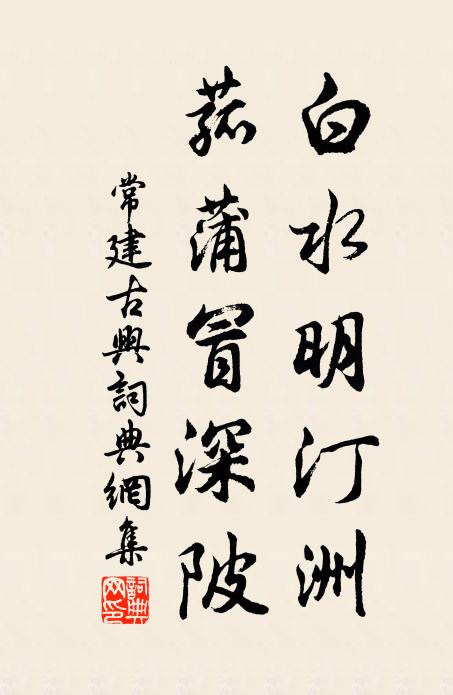 白水明汀洲
菰蒲冒深陂
常建古興詞典網集
詞典网印